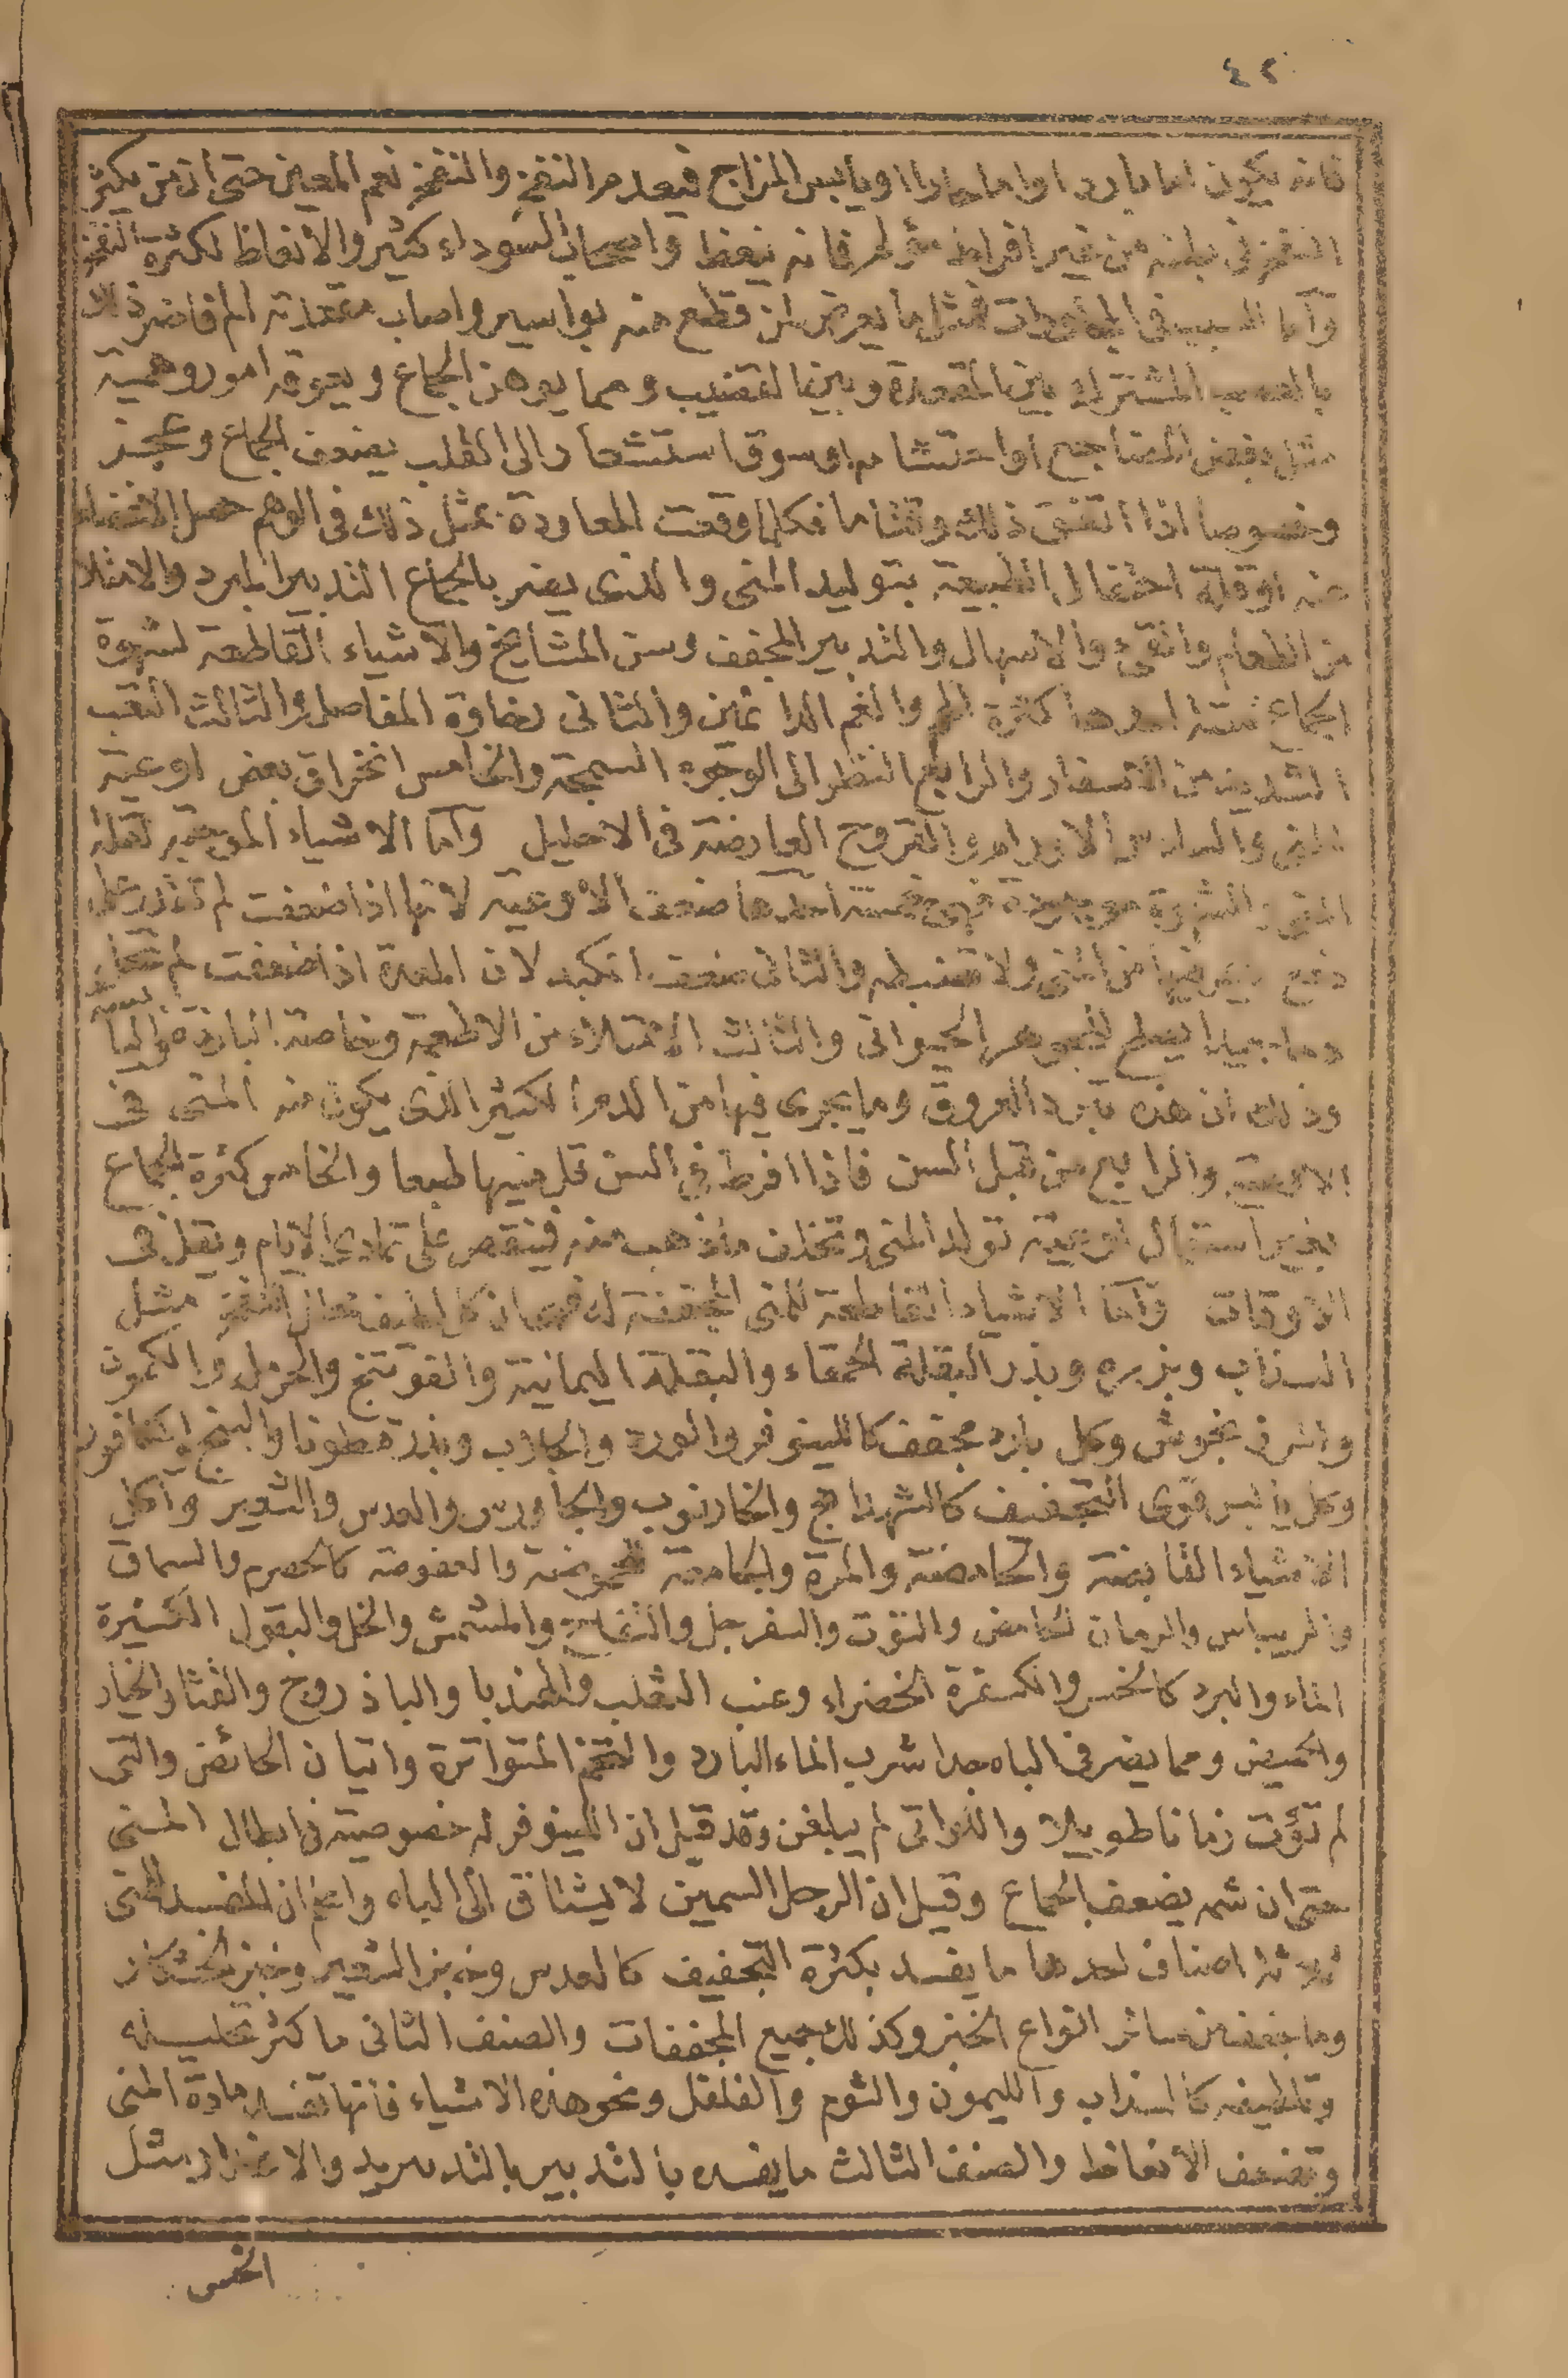 ٤٢
فانه يكون اما باردا واما حارا او يابس المزاج فيعدم النفخ والنفخ نعم المعين حتى ان من يكثر
النفخ فى بطنه من غير افراط مؤلم فانه ينعظ واصحاب السوداء كثير والانعاظ لكثرة النفخ
وآما السبب فى المجاورات فمثل ما يعرض لمن قطع منه بواسير واصاب مقعدته الم فاضر ذلك
بالعصب المشترك بين المقعدة وبين القضيب ومما يوهن الجماع ويعوقه امور وهمية
مثل بغض المجامع او احتشامه او سوق استشعار الى القلب بضعف الجماع وعجز
وخصوصا اذا اتفق ذلك وقتا ما فكلما وقعت المعاودة بمثل ذلك فى الوهم
عنه او قلة احتفال الطبيعة بتوليد المنى والذى يضر بالجماع التدبير المبرد والامتلا
من الطعام والقئ والاسهال والتدبير المجفف وسن المشايخ والاشياء القاطعة لشهوة
الجماع ستة احدها كثرة الهم والغم الدائمين والثانى رخاوة المفاصل والثالث التعب
الشديد من الاسفار والرابع النظر الى الوجوه السمجة والخامس انخراق بعض اوعية
المنى والسادس الاورام والقروح العارضة فى الاحليل وآما الاشياء الموجبة لقلة
المنى والشهوة موجودة فهى خمسة احدها ضعف الاوعية لانها اذا ضعفت لم تقدر على
دفع من المنى ولا تضبطه والثانى ضعف الكبد لان المعدة اذا ضعفت لم
دما جيدا يصلح للجوهر الحيوانى والثالث الامتلاء من الاطعمة وخاصة الباردة
وذلك ان هذه تبرد العروق وما يجرى فيها من الدم الكثير الذى يكون منه المنى فى
الاوعية والرابع من قبل السن فاذا افرط فى السن قل منيها طبعا والخامس كثرة الجماع
بغير استقبال اوعية تولد المنى وتخلف ما ذهب منه فينقص على تمادى الايام ويقل فى
الاوقات وآما الاشياء القاطعة للمنى المجففة له مثل
السذاب وبزره وبذر البقلة الحمقاء والبقلة اليمانية والفوتنج والحرمل والكمون
والمرزنجوش وكل بارد مجفف كاللينوفر والورد والجلاب وبذر قطونا والبنج والكافور
وكل يابس قوى التجفيف كالشهدانج والخارنوب والجاورس والعدس والشعير وآكل
الاشياء القابضة والحامضة والمرة والجامعة للحموضة والعفوصة كالحصرم والسماق
والريباس والرمان الحامض والتوت والسفرجل والتفاح والمشمش والخل والبقول الكثيرة
الماء والبرد كالخس والكسفرة الخضراء وعنب الثعلب والهندبا والباذروج والقثا والخيار
والحميض ومما يضر فى الباه جدا شرب الماء البارد والتخم المتواترة واتيان الحائض والتى
لم تؤت زمانا طويلا واللواتى لم يبلغن وقد قيل ان اللينوفر له خصوصية فى ابطال المنى
حتى ان شمه يضعف الجماع وقيل ان الرجل السمين لا يشتاق الى الباه واعلم ان المفسد للمنى
ثلاثة اصناف احدها ما يفسد بكثرة التجفيف كالعدس وخبز الشعير وخبز الخشكار
وما جفف من سائر انواع الخبز وكذلك جميع المجففات والصنف الثانى ما كثر تحليله
وتلطيفه كالسذاب والليمون والثوم والفلفل ونحو هذه الاشياء فانها تفسد مادة المنى
وتضعف الانعاظ والصنف الثالث ما يفسده بالتدبير بالتدبريد والاغزار مثل
الخس